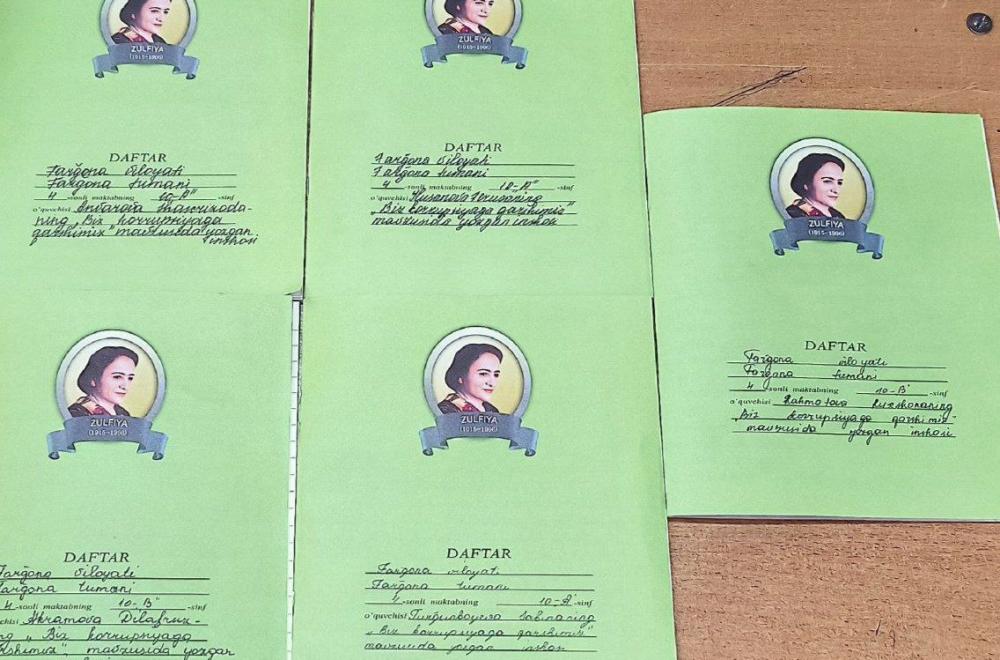 ZULFIYA
(1915-1996)
DAFTAR
Farg'ona viloyati
Farg'ona tumani
4 -sonli maktabning -sinf
o'quvchisi
ning „Biz korrupsiyaga
qarshimiz" mavzusida yozgan
inshosi
ZULFIYA
(1915-1996)
DAFTAR
Farg'ona viloyati
Farg'ona tumani
4 -sonli maktabning 10-A" -sinf
o'quvchisi
„Biz korrupsiyaga qarshimiz"
mavzusida yozgan inshosi
ZULFIYA
(1915-1996)
DAFTAR
Farg'ona viloyati
Farg'ona tumani
4 -sonli maktabning 10-B" -sinf
o'quvchisi Rahmatova
„Biz korrupsiyaga qarshimiz"
mavzusida yozgan inshosi
ZULFIYA
(1915-1996)
DAFTAR
Farg'ona viloyati
Farg'ona tumani
4 -sonli maktabning 10-B" -sinf
quvchisi Akramova Dilafruz-
ng „Biz korrupsiyaga
qarshimiz", mavzusida yozgan
ZULFIYA
(1915-1996)
DAFTAR
Farg'ona viloyati
Farg'ona tumani
4 -sonli maktabning 10-A" -sinf
o'quvchisi Sabinaning
„Biz korrupsiyaga qarshimiz"
mavzusida yozgan inshosi